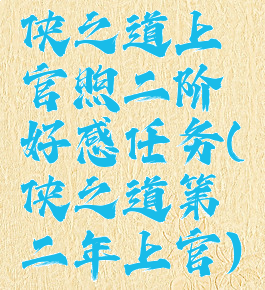 侠之道上
官煦二阶
好感任务(
侠之道第
二年上官)